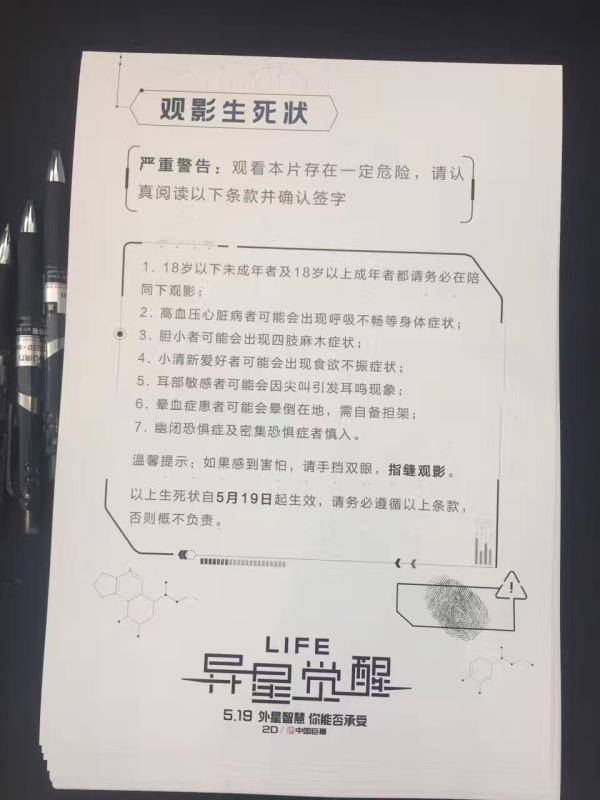 观影生死状
严重警告：观看本片存在一定危险，请认
真阅读以下条款并确认签字
1. 18岁以下未成年者及18岁以上成年者都请务必在陪
同下观影；
2. 高血压心脏病者可能会出现呼吸不畅等身体症状；
3. 胆小者可能会出现四肢麻木症状；
4. 小清新爱好者可能会出现食欲不振症状；
5. 耳部敏感者可能会因尖叫引发耳鸣现象；
6. 晕血症患者可能会晕倒在地，需自备担架；
7. 幽闭恐惧症及密集恐惧症者慎入。
温馨提示：如果感到害怕，请手挡双眼，指缝观影。
以上生死状自5月19日起生效，请务必遵循以上条款，
否则概不负责。
LIFE
异星觉醒
5.19 外星智慧 你能否承受
2D / 中国巨幕